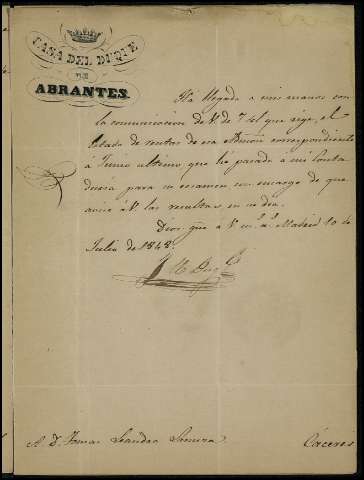 CASA DEL DUQUE
DE
ABRANTES.
Ha llegado a mis manos con
la comunicacion de V. de 7 del que rige, el
Estado de rentas de esa Admon correspondiente
á Junio ultimo, que he pasado á mi Conta
duria para su examen con encargo de que
avise á V. las resultas en su dia.
Dios gue á V. m. a. Madrid 10 de
Julio de 1848.
El Duq
A D. Tomas Leandro
Cáceres